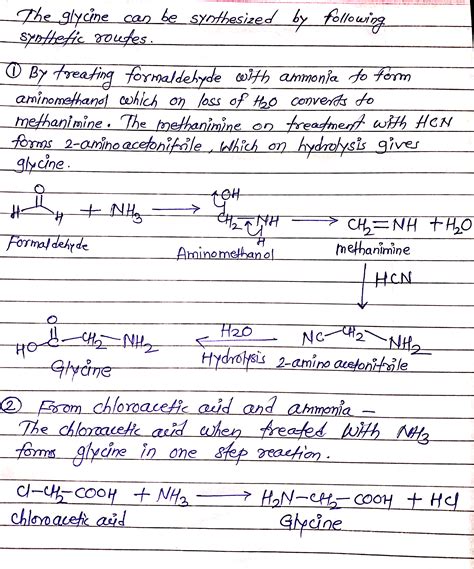 The glycine can be synthesized by following
synthetic routes.
① By treating formaldehyde with ammonia to form
aminomethanol which on loss of H2O converts to
methanimine. The methanimine on treatment with HCN
forms 2-amino acetonitrile, which on hydrolysis gives
glycine.
O
H H + NH3 → OH CH2-NH H → CH2=NH + H2O
Formaldehyde Aminomethanol methanimine
HCN
O
HO-C-CH2-NH2 ← H2O Hydrolysis NC-CH2-NH2
Glycine 2-amino acetonitrile
② From chloroacetic acid and ammonia -
The chloroacetic acid when treated with NH3
forms glycine in one step reaction.
Cl-CH2-COOH + NH3 → H2N-CH2-COOH + HCl
chloroacetic acid Glycine